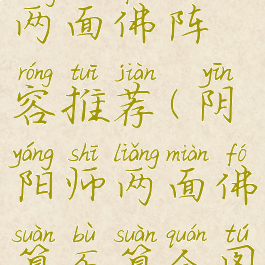 两面佛阵
róng tuī jiàn yīn
容推荐(阴
yáng shī liǎng miàn fó
阳师两面佛
suàn bù suàn quán tú
算不算全图